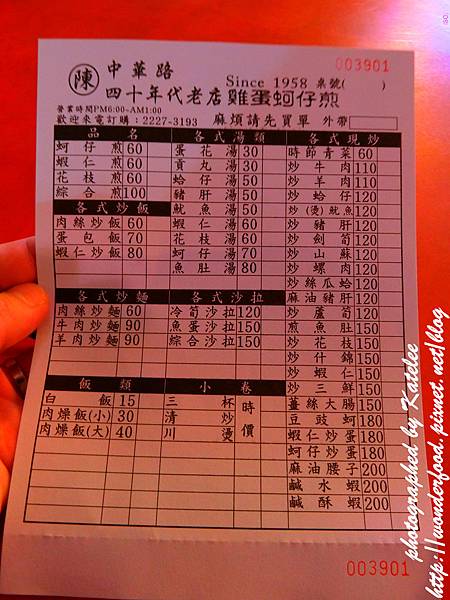 003901
陳 中華路
四十年代老店雞蛋蚵仔煎
Since 1958 桌號( )
營業時間PM6:00~AM1:00
歡迎來電訂購:2227-3193 麻煩請先買單 外帶
品名
蚵仔煎 60
蝦仁煎 60
花枝煎 60
綜合煎 100
各式炒飯
肉絲炒飯 60
蛋包飯 70
蝦仁炒飯 80
各式炒麵
肉絲炒麵 60
牛肉炒麵 90
羊肉炒麵 90
飯類
白飯 15
肉燥飯(小) 30
肉燥飯(大) 40
各式湯類
蛋花湯 30
貢丸湯 30
蛤仔湯 50
豬肝湯 50
魷魚湯 50
蝦仁湯 60
花枝湯 60
蚵仔湯 70
魚肚湯 80
各式沙拉
冷筍沙拉 120
魚蛋沙拉 150
綜合沙拉 150
小卷
三杯
清炒
川燙
時價
各式現炒
時節青菜 60
炒牛肉 110
炒羊肉 110
炒蛤仔 120
炒(燙)魷魚 120
炒豬肝 120
炒劍筍 120
炒山蘇 120
炒螺肉 120
炒絲瓜蛤 120
麻油豬肝 120
炒蘆筍 120
煎魚肚 150
炒花枝 150
炒什錦 150
炒蝦仁 150
炒三鮮 150
薑絲大腸 150
豆豉蚵 180
蝦仁炒蛋 180
蚵仔炒蛋 180
麻油腰子 200
鹹水蝦 200
鹹酥蝦 200
003901
photographed by Katelee
http://wonderfood.pixnet.net/blog